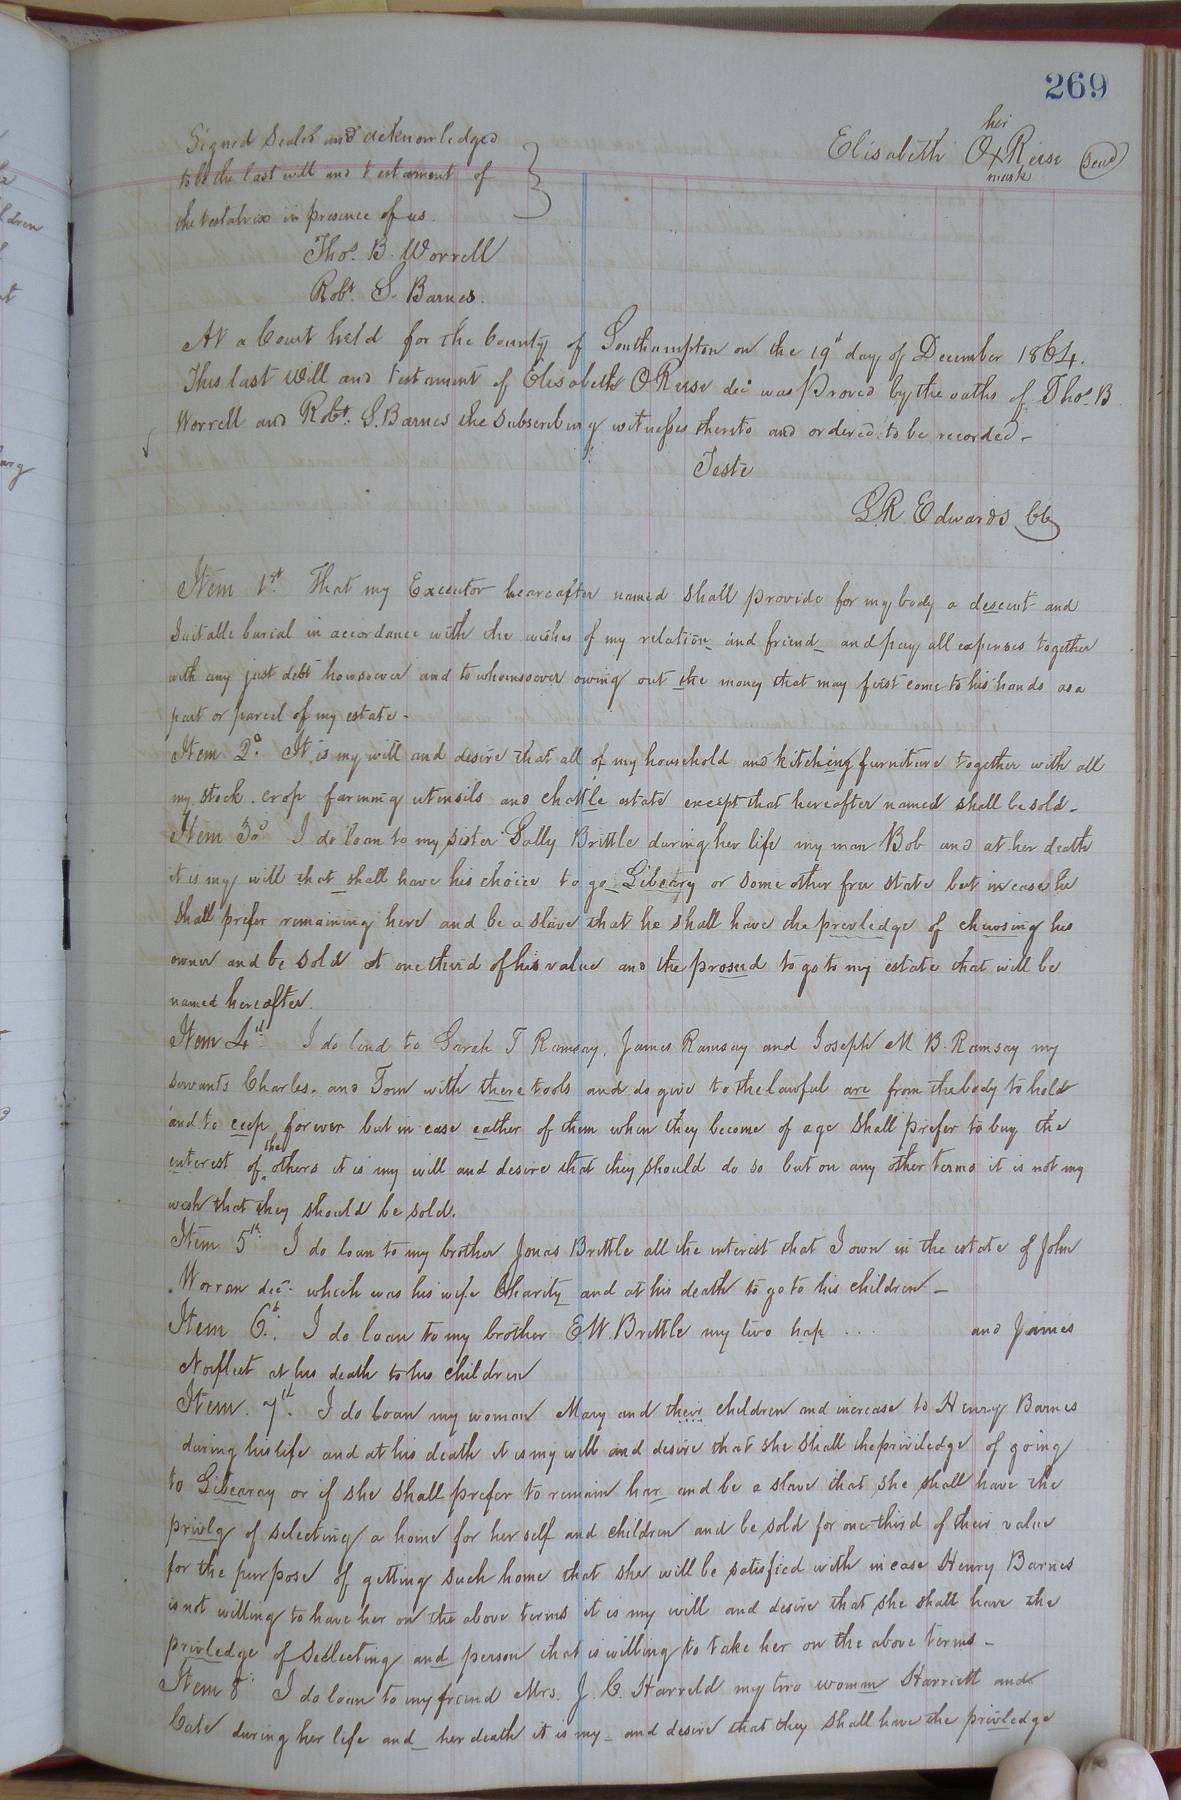 269
Signed Sealed and acknowledged
to be the last will and testament of
the testatrix in presence of us.
Elisabeth O Reese Seal
her
x
mark
Thos. B. Worrell
Robt. S. Barnes.
At a Court held for the County of Southampton on the 19th day of December 1864.
This last Will and testament of Elisabeth O Reese decd was Proved by the oaths of Thos. B
Worrell and Robt. S. Barnes the Subscribing witnesses thereto and ordered to be recorded –
Teste
L R Edwards CC
Item 1st. That my Executor heareafter named shall provide for my body a descent and
suitable burial in accordance with the wishes of my relation and friend and pay all expenses together
with any just debt howsoever and to whomsoever owing out the money that may first come to his hands as a
part or parcel of my estate –
Item 2d. It is my will and desire that all of my household and kitching furniture together with all
my stock crop farming utensils and chattle estate except that hereafter named shall be sold –
Item 3d I do loan to my sister Sally Brittle during her life my man Bob and at her death
it is my will that shall have his choice to go Libeary or some other free state but in case he
shall prefer remaining here and be a slave that he shall have the prevledge of cheusing his
owner and be sold at one third of his value and the proseed to go to my estate that will be
named hereafter.
Item 4th I do lend to Sarah T Ramsay, James Ramsay and Joseph M B. Ramsay my
servants Charles and Tom with there tools and do give to the lawful are from the body to hold
and to ceep forever but in case eather of them when they become of age shall prefer to buy the
enterest of the others it is my will and desire that they should do so but on any other terms it is not my
wish that they should be sold.
Item 5th. I do loan to my brother Jonas Brittle all the interest that I own in the estate of John
Worran decd. which was his wife Charity and at his death to go to his children –
Item 6th. I do loan to my brother E.W. Brittle my two hap . . . and James
Norfleet at his death to his children
Item. 7th. I do loan my woman Mary and their children and increase to Henry Barnes
during his life and at his death it is my will and desire that she shall the priviledge of going
to Libearay or if she shall prefer to remain har and be a slave that she shall have the
privlg of selecting a home for her self and children and be sold for one third of their value
for the purpose of getting such home that she will be satisfied with in case Henry Barnes
is not willing to have her on the above terms it is my will and desire that she shall have the
privledge of Sellecting and person that is willing to take her on the above terms –
Item 8 I do loan to my friend Mrs. J. C. Harreld my two womm Harriett and
Cate during her life and her death it is my and desire that they shall have the privledge